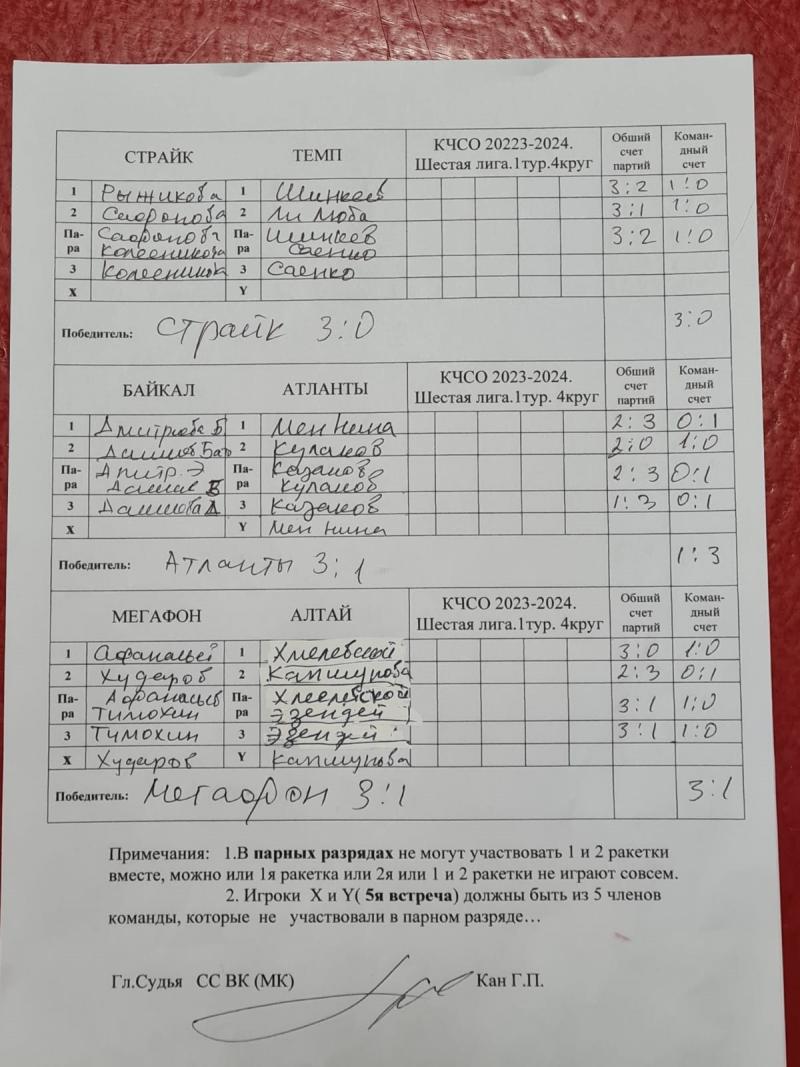 СТРАЙК ТЕМП КЧСО 20223-2024. Шестая лига.1тур.4круг Общий счет партий Коман-дный счет
1 Рыжикова 1 Шинкеев 3:2 1:0
2 Сафронова 2 Ли Люба 3:1 1:0
Па-ра Сафронова Па-ра Шинкеев 3:2 1:0
Колесникова Саенко
3 Колесников 3 Саенко
X Y
Победитель: Страйк 3:0 3:0
БАЙКАЛ АТЛАНТЫ КЧСО 2023-2024. Шестая лига.1тур. 4круг Общий счет партий Коман-дный счет
1 1 Мен Нина 2:3 0:1
2 2 Куланов 2:0 1:0
Па-ра Дмитр. Э Па-ра Казаков 2:3 0:1
Куланов
3 3 Казаков 1:3 0:1
X Y Мен Нина
Победитель: Атланты 3:1 1:3
МЕГАФОН АЛТАЙ КЧСО 2023-2024. Шестая лига.1тур. 4круг Общий счет партий Коман-дный счет
1 Афанасьев 1 Хмелевской 3:0 1:0
2 Худяров 2 Капшунова 2:3 0:1
Па-ра Афанасьев Па-ра Хмелевской 3:1 1:0
Тимохин Эзендей
3 Тимохин 3 Эзендей 3:1 1:0
X Худяров Y Капшунова
Победитель: Мегафон 3:1 3:1
Примечания: 1.В парных разрядах не могут участвовать 1 и 2 ракетки
вместе, можно или 1я ракетка или 2я или 1 и 2 ракетки не играют совсем.
2. Игроки X и Y( 5я встреча) должны быть из 5 членов
команды, которые не участвовали в парном разряде…
Гл.Судья СС ВК (МК) Кан Г.П.